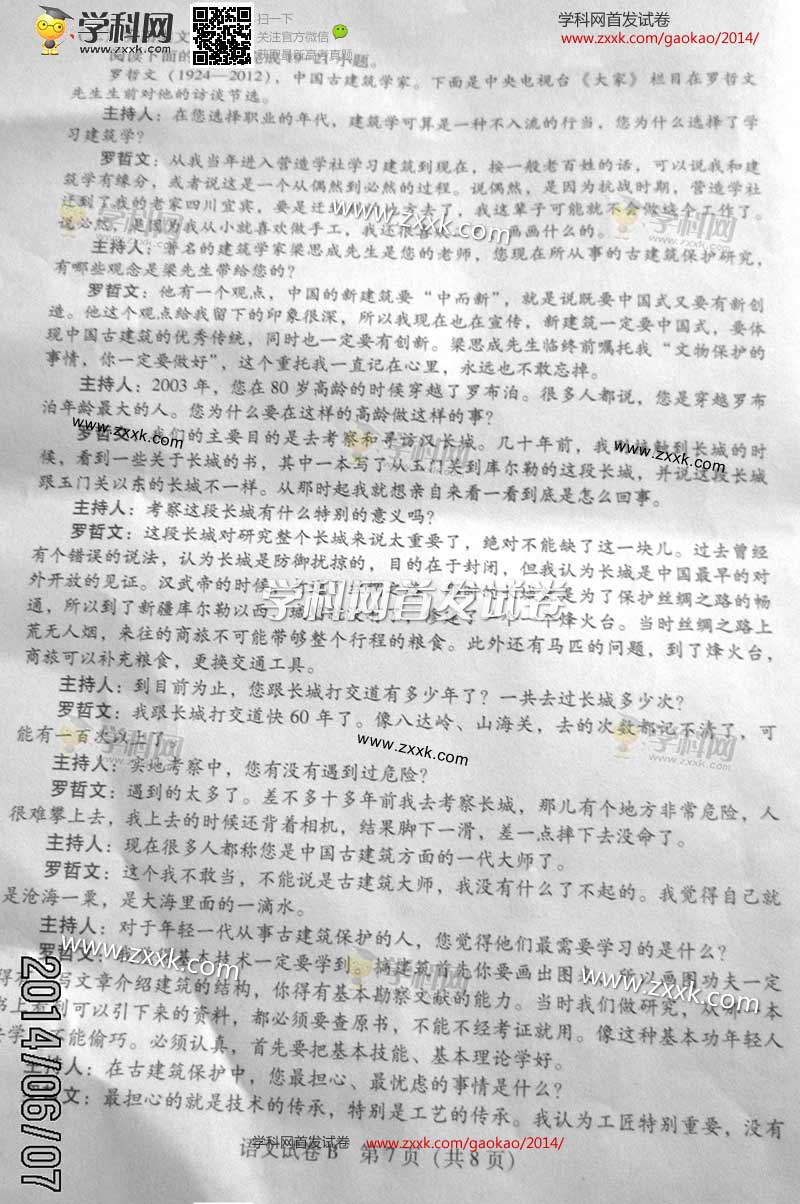 学科网
www.zxxk.com
扫一下
关注官方微信
获取最新高考真题
学科网首发试卷
www.zxxk.com/gaokao/2014/
阅读下面的 成19—21小题。
罗哲文（1924—2012），中国古建筑学家。下面是中央电视台《大家》栏目在罗哲文
先生生前对他的访谈节选。
主持人：在您选择职业的年代，建筑学可算是一种不入流的行当，您为什么选择了学
习建筑学？
罗哲文：从我当年进入营造学社学习建筑到现在，按一般老百姓的话，可以说我和建
筑学有缘分，或者说这是一个从偶然到必然的过程。说偶然，是因为抗战时期，营造学社
迁到了我的老家四川宜宾，要是迁 方去了，我这辈子可能就不会做这个工作了。
说必然，是因为我从小就喜欢做手工，我还很喜欢 画画什么的。
主持人：著名的建筑学家梁思成先生是您的老师，您现在所从事的古建筑保护研究，
有哪些观念是梁先生带给您的？
罗哲文：他有一个观点，中国的新建筑要“中而新”，就是说既要中国式又要有新创
造。他这个观点给我留下的印象很深，所以我现在也在宣传，新建筑一定要中国式，要体
现中国古建筑的优秀传统，同时也一定要有创新。梁思成先生临终前嘱托我“文物保护的
事情，你一定要做好”，这个重托我一直记在心里，永远也不敢忘掉。
主持人：2003年，您在80岁高龄的时候穿越了罗布泊。很多人都说，您是穿越罗布
泊年龄最大的人。您为什么要在这样的高龄做这样的事？
罗哲文：我们的主要目的是去考察和寻访汉长城。几十年前，我 接触到长城的时
候，看到一些关于长城的书，其中一本写了从玉门关到库尔勒的这段长城，并说这段长城
跟玉门关以东的长城不一样。从那时起我就想亲自来看一看到底是怎么回事。
主持人：考察这段长城有什么特别的意义吗？
罗哲文：这段长城对研究整个长城来说太重要了，绝对不能缺了这一块儿。过去曾经
有个错误的说法，认为长城是防御扰掠的，目的在于封闭，但我认为长城是中国最早的对
外开放的见证。汉武帝的时候 是为了保护丝绸之路的畅
通，所以到了新疆库尔勒以西 个烽火台。当时丝绸之路上
荒无人烟，来往的商旅不可能带够整个行程的粮食。此外还有马匹的问题，到了烽火台，
商旅可以补充粮食，更换交通工具。
主持人：到目前为止，您跟长城打交道有多少年了？一共去过长城多少次？
罗哲文：我跟长城打交道快60年了。像八达岭、山海关，去的次数都记不清了，可
能有一百次以上了
主持人：实地考察中，您有没有遇到过危险？
罗哲文：遇到的太多了。差不多十多年前我去考察长城，那儿有个地方非常危险，人
很难攀上去，我上去的时候还背着相机，结果脚下一滑，差一点摔下去没命了。
主持人：现在很多人都称您是中国古建筑方面的一代大师了。
罗哲文：这个我不敢当，不能说是古建筑大师，我没有什么了不起的。我觉得自己就
是沧海一粟，是大海里面的一滴水。
主持人：对于年轻一代从事古建筑保护的人，您觉得他们最需要学习的是什么？
罗哲文 基本技术一定要学到。搞建筑首先你要画出图 所以画图功夫一定
得 写文章介绍建筑的结构，你得有基本勘察文献的能力。当时我们做研究，从 本
书上看到可以引下来的资料，都必须要查原书，不能不经考证就用。像这种基本功年轻人
去学 不能偷巧。必须认真，首先要把基本技能、基本理论学好。
主持人：在古建筑保护中，您最担心、最忧虑的事情是什么？
文：最担心的就是技术的传承，特别是工艺的传承。我认为工匠特别重要，没有
语文试卷B 第7页（共8页）
学科网首发试卷
www.zxxk.com/gaokao/2014/
2014/06/07
学科网首发试卷
www.zxxk.com
www.zxxk.com
www.zxxk.com
www.zxxk.com
www.zxxk.com
www.zxxk.com
学科网
zxxk.com
学科网
zxxk.com
学科网
zxxk.com
学科网
zxxk.com